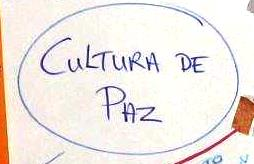 CULTURA DE
PAZ